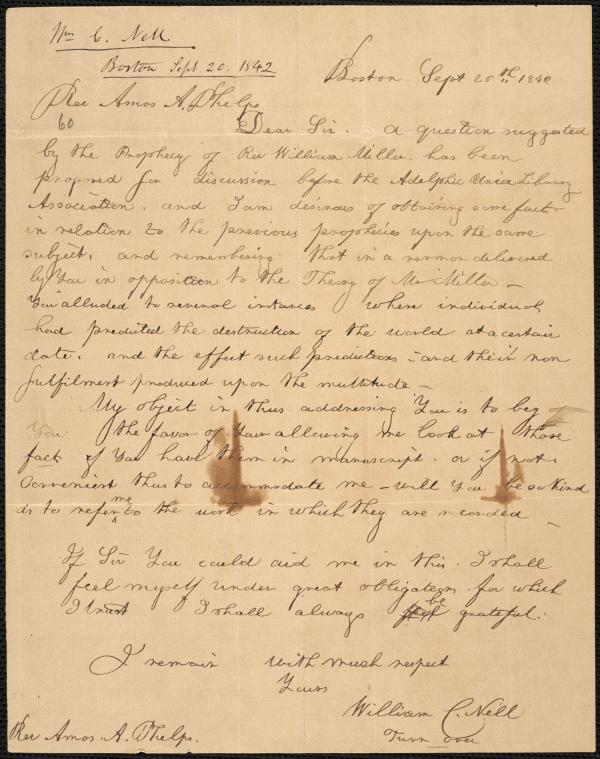 Wm C. Nell
Boston Sept. 20. 1842.
Boston Sept 20th 1842
Rev Amos A. Phelps
60
Dear Sir. A question suggested
by the Prophecy of Rev William Miller. has been
proposed for discussion before the Adelphic Union Library
Association. and I am desirous of obtaining some facts
in relation to the previous prophecies upon the same
subject. and remembering that in a sermon delivered
by You in opposition to the Theory of Mr Miller –
You alluded to several instances where individuals
had predicted the destruction of the world at a certain
date. and the effect such predictions – and their non
fulfilment produced upon the multitude –
My object in thus addressing You is to beg of
You the favor of Your allowing me look at those
facts if You have them in manuscript. or if not
convenient thus to accommodate me – will You be so kind
as to refer me to the work in which they are recorded –
If Sir You could aid me in this. I shall
feel myself under great obligations for which
I trust I shall always be grateful.
I remain with much respect
Yours
William C. Nell
Turn over
Rev Amos A. Phelps.